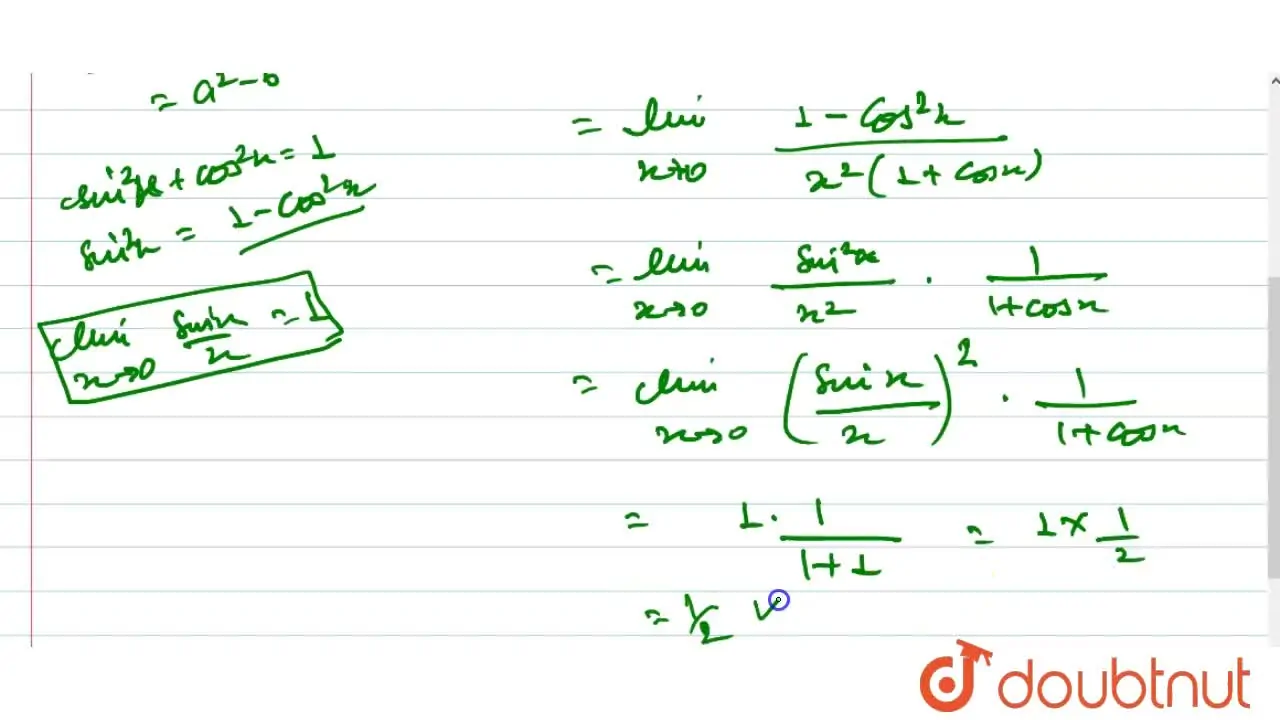 = a² - b
sin²x + cos²x = 1
sin²x = 1 - cos²x
lim x→0 sin x / x = 1
= lim x→0 1 - cos²x / x² (1 + cos x)
= lim x→0 sin²x / x² · 1 / 1 + cos x
= lim x→0 (sin x / x)² · 1 / 1 + cos x
= 1 · 1 / 1 + 1 = 1 × 1 / 2
= 1/2
doubtnut